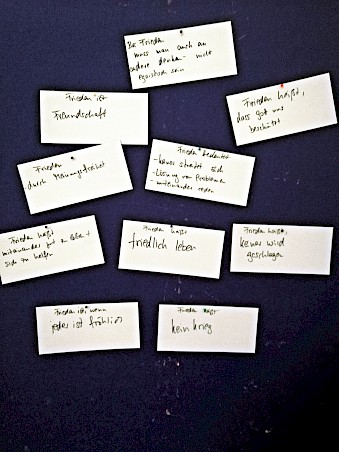 Bei Frieden
muss man auch an
andere denken - nicht
egoistisch sein
Frieden ist
Freundschaft
Frieden heißt,
dass Gott uns
beschützt
Frieden
durch Meinungsfreiheit
Frieden bedeutet
- keiner streitet sich
- Lösung von Problemen
- miteinander reden
Frieden heißt
miteinander gut zu leben +
sich zu helfen
Frieden heißt
friedlich leben
Frieden heißt,
keiner wird
geschlagen
Frieden ist, wenn
jeder ist fröhlich
Frieden heißt
kein Krieg